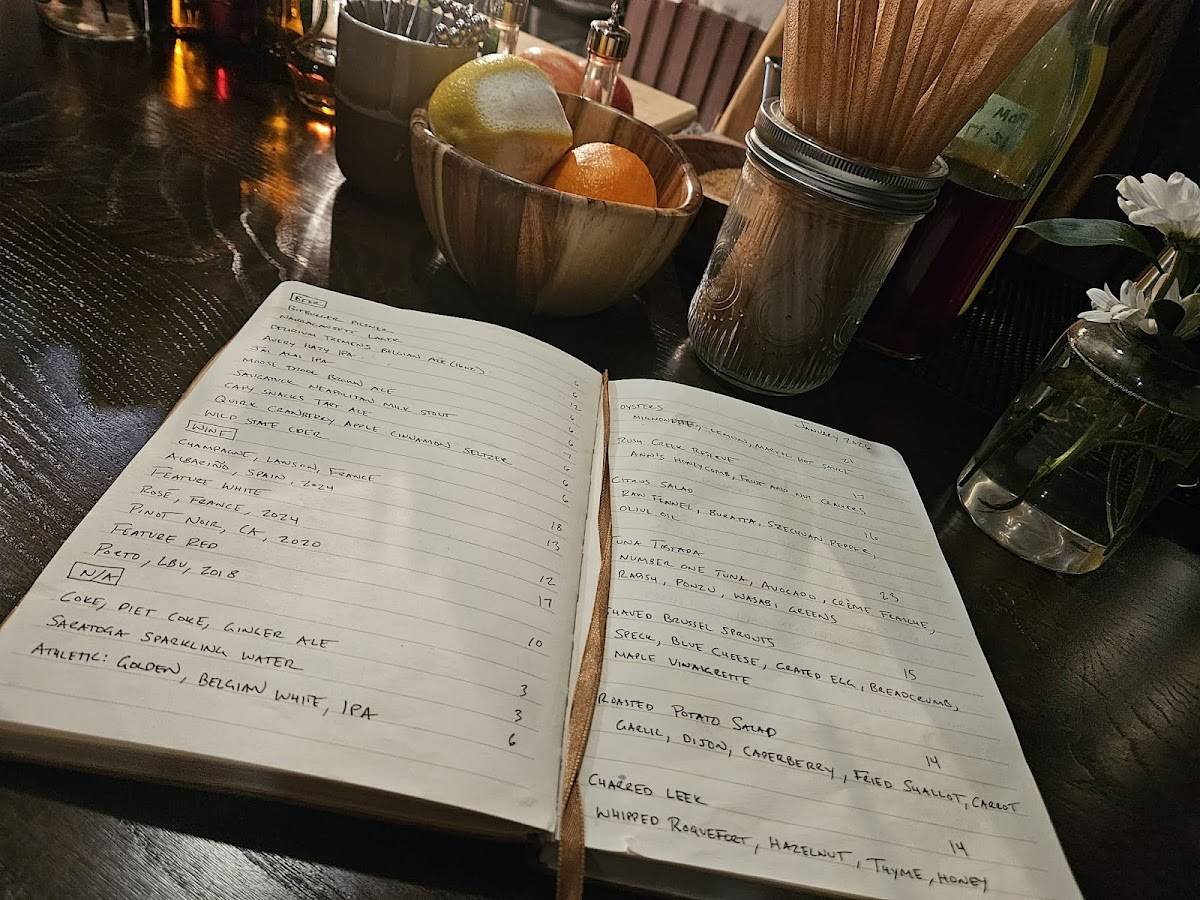 BEER
BITBURGER PILSNER
NARRAGANSETT LAGER 6
DELIRIUM TREMENS BELGIAN ALE 12
AVERY HAZY IPA 6
JAI ALAI IPA 6
MOOSE DROOL BROWN ALE 6
SAUGATUCK NEAPOLITAN MILK STOUT 7
CAPY SNACKS TART ALE 6
QUIRK CRANBERRY APPLE CINNAMON SELTZER 6
WILD STATE CIDER 6
WINE
CHAMPAGNE, LAWSON, FRANCE 18
ALBARIÑO, SPAIN, 2024 13
FEATURE WHITE
ROSÉ, FRANCE, 2024 12
PINOT NOIR, CA, 2020 17
FEATURE RED
PORTO, LBV, 2018 10
N/A
COKE, DIET COKE, GINGER ALE 3
SARATOGA SPARKLING WATER 3
ATHLETIC: GOLDEN, BELGIAN WHITE, IPA 6
JANUARY 2026
OYSTERS 21
MIGNONETTE, LEMON, MARVOL HOT SAUCE
RUSH CREEK RESERVE 17
ANN'S HONEYCOMB, FRUIT AND NUT CRACKERS
CITRUS SALAD 16
RAW FENNEL, BURATTA, SZECHUAN PEPPER,
OLIVE OIL
TUNA TOSTADA 23
NUMBER ONE TUNA, AVOCADO, CRÈME FRAICHE,
RADISH, PONZU, WASABI GREENS
SHAVED BRUSSEL SPROUTS 15
SPECK, BLUE CHEESE, GRATED EGG, BREADCRUMB,
MAPLE VINAIGRETTE
ROASTED POTATO SALAD 14
GARLIC, DIJON, CAPERBERRY, FRIED SHALLOT, CARROT
CHARRED LEEK 14
WHIPPED ROQUEFORT, HAZELNUT, THYME, HONEY